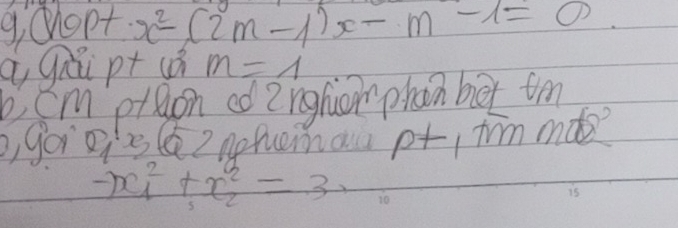 g, Cho pt x² - (2m - 1)x - m - 1 = 0
a, giải pt với m = 1
b, Cm pt luôn có 2 nghiệm phân biệt ∀m
gọi x₁, x₂ là 2 nghiệm của pt, tìm m để
x₁² + x₂² = 3
5 10 15